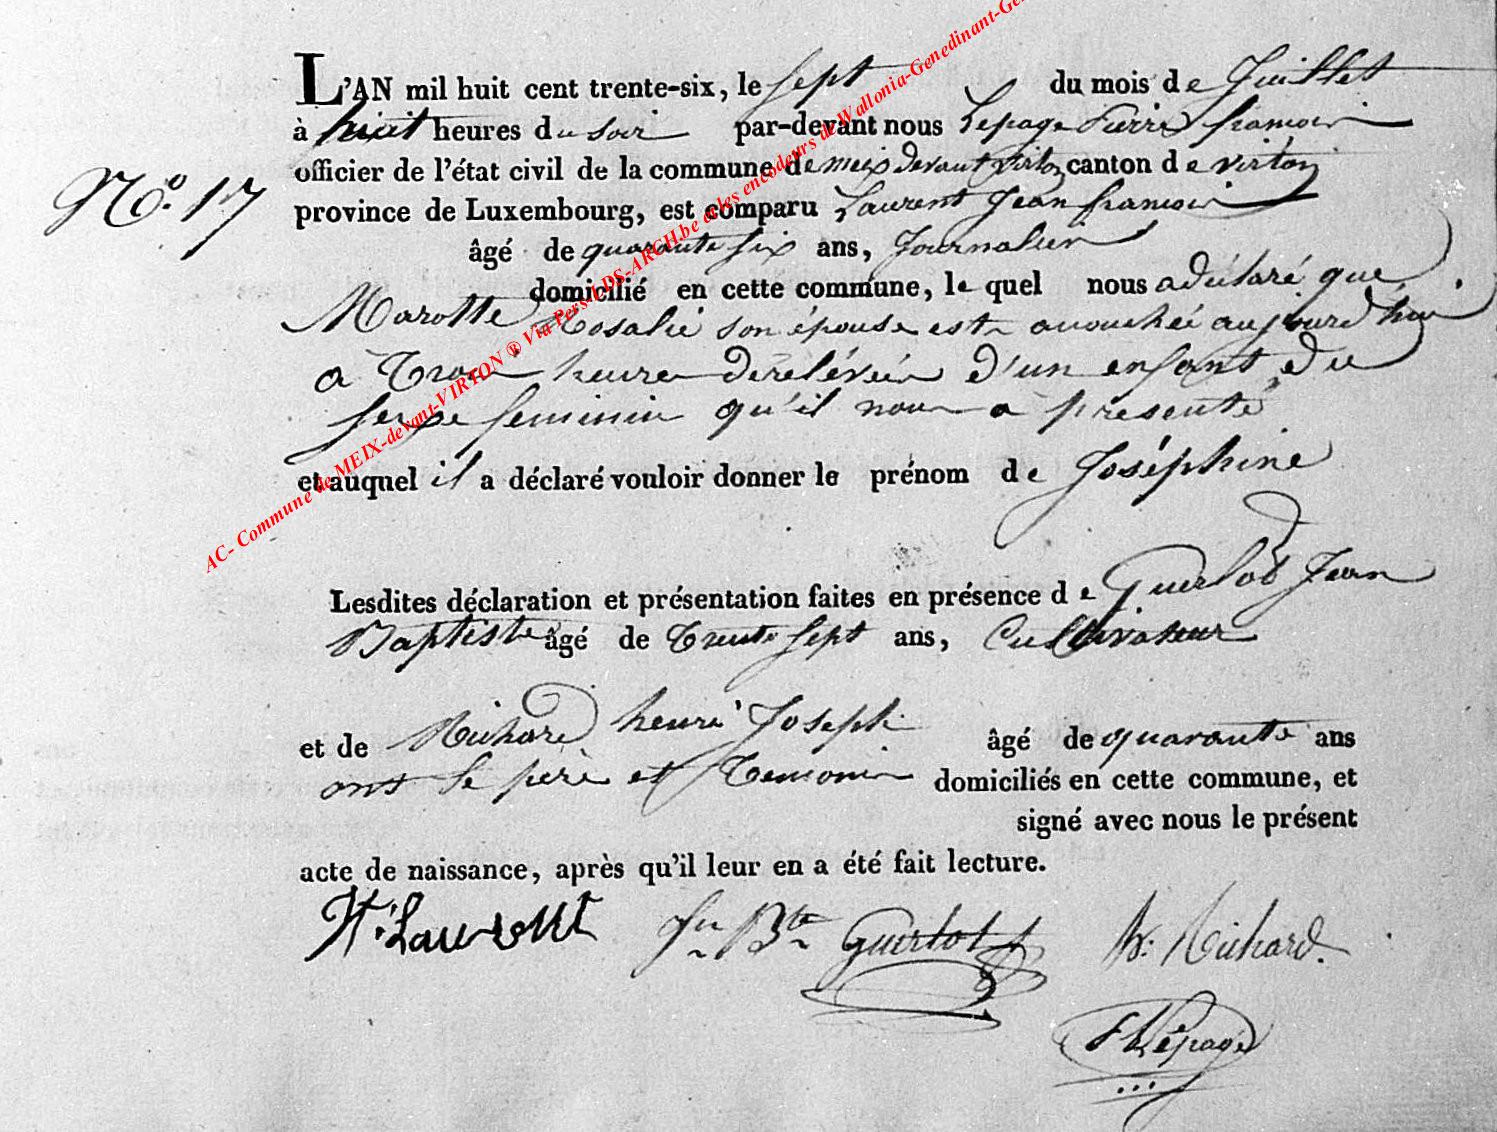 L'AN mil huit cent trente-six, le sept du mois de Juillet
à huit heures du soir par-devant nous Lepage Pierre françois
officier de l'état civil de la commune de meix devant virton canton de virton
N.° 17
province de Luxembourg, est comparu Laurent Jean françois
âgé de quarante six ans, Journalier
domicilié en cette commune, le quel nous a déclaré que
Marotte Rosalie son épouse est accouchée aujourd'hui
à trois heures de relévée d'un enfant du
sexe feminin qu'il nous a présenté
et auquel il a déclaré vouloir donner le prénom de Joséphine
Lesdites déclaration et présentation faites en présence de Guerlot Jean
Baptiste âgé de trente sept ans, Cultivateur
et de Richard henri Joseph âgé de quarante ans
ont le père et temoins domiciliés en cette commune, et
signé avec nous le présent
acte de naissance, après qu'il leur en a été fait lecture.
Laurent Jn Bte Guerlot h. Richard.
Lepage
AC- Commune de MEIX-devant-VIRTON ® Via Pers-LDS-ARCH.be et les encodeurs de Wallonia-Genedinant-Ge